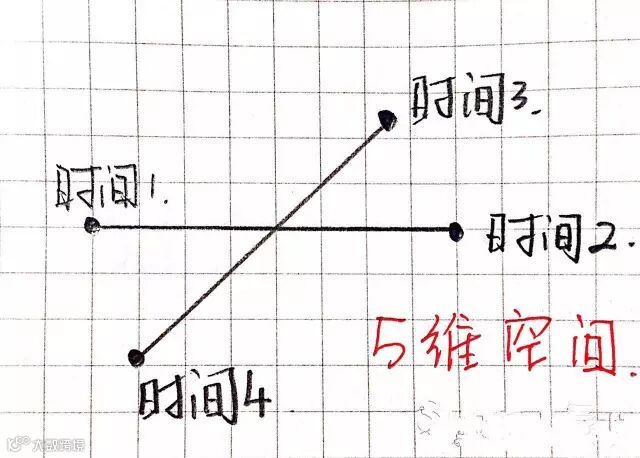 时间3.
时间1.
时间2.
5维空间.
时间4
大数跨境